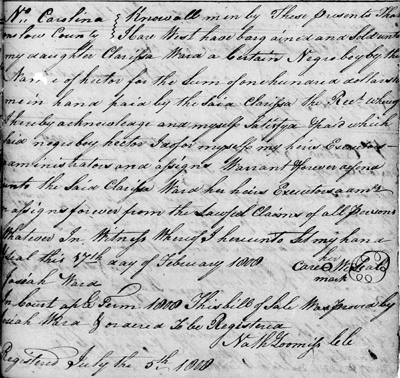 No. Carolina } Know all men by These presents That
nslow County } I Care West have bargained and Sold unto
my daughter Clarissa Ward a Certain Negro boy by the
Name of hector for the Sum of one hundred dollars to
me in hand paid by the Said Clarissa the Rect. whereof
I hereby acknowledge and myself Satisfyd & paid which
Said negro boy hector I do for myself my heirs Executors
administrators and assigns Warrant & forever defend
unto the Said Clarissa Ward her heirs Executors admrs
& assigns forever from the Lawful Claims of all persons
Whatever In Witness Whereof I hereunto Set my hand
& Seal this 17th day of February 1808
his
Care West Seal
mark
Josiah Ward
In Court Term 1808 This bill of Sale Was proved by
Josiah Ward & ordered To be Registered
Registered July the 5th 1808 Nath Loomis Clk